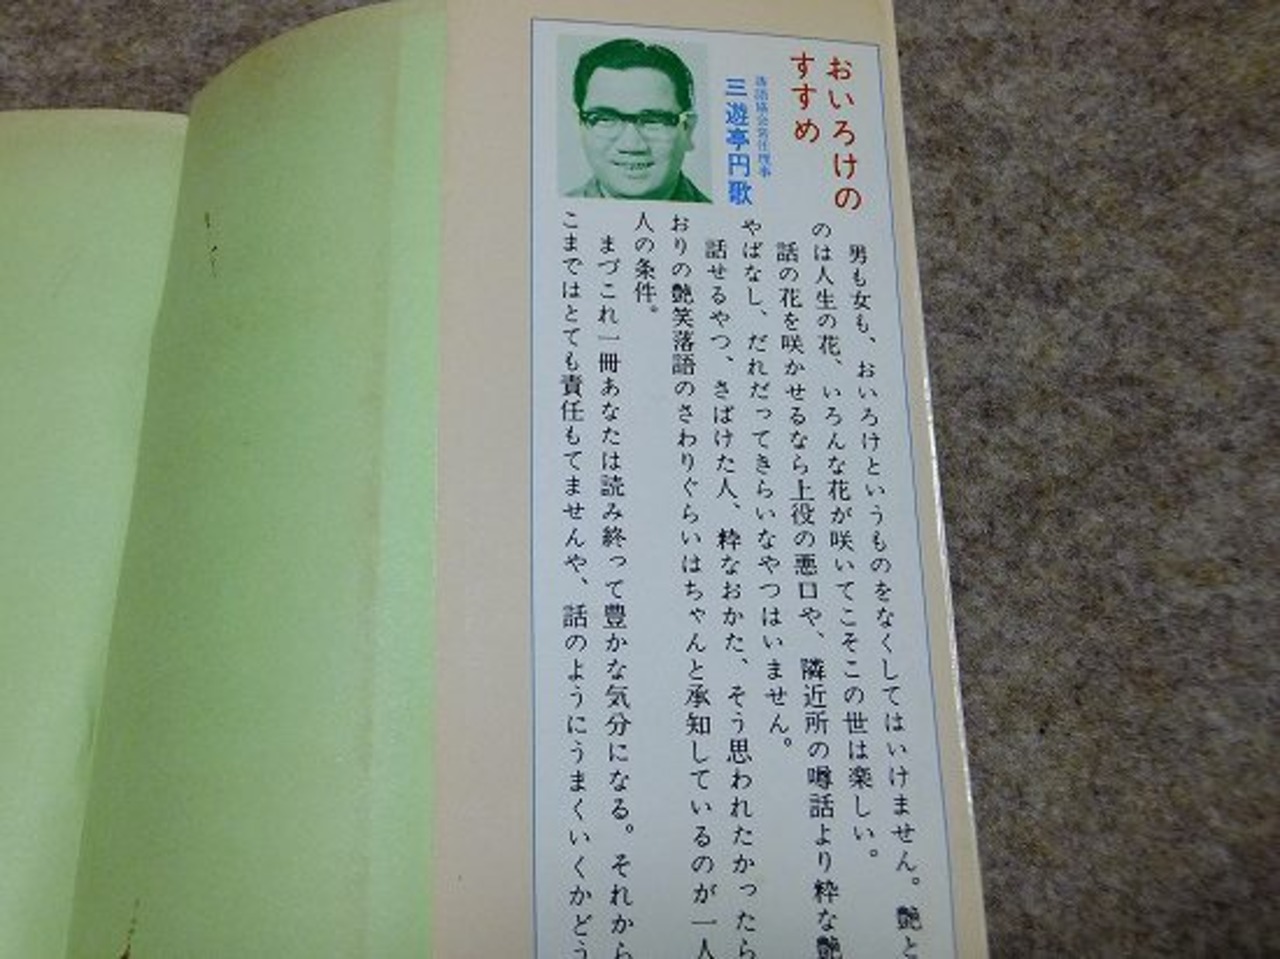 おいろけの
すすめ
落語協会常任理事
三遊亭円歌
男も女も、おいろけというものをなくしてはいけません。艶と
のは人生の花、いろんな花が咲いてこそこの世は楽しい。
話の花を咲かせるなら上役の悪口や、隣近所の噂話より粋な艶
やばなし、だれだってきらいなやつはいません。
話せるやつ、さばけた人、粋なおかた、そう思われたかったら
おりの艶笑落語のさわりぐらいはちゃんと承知しているのが一人
人の条件。
まづこれ一冊あなたは読み終って豊かな気分になる。それから
こまではとても責任もてませんや、話のようにうまくいくかどう